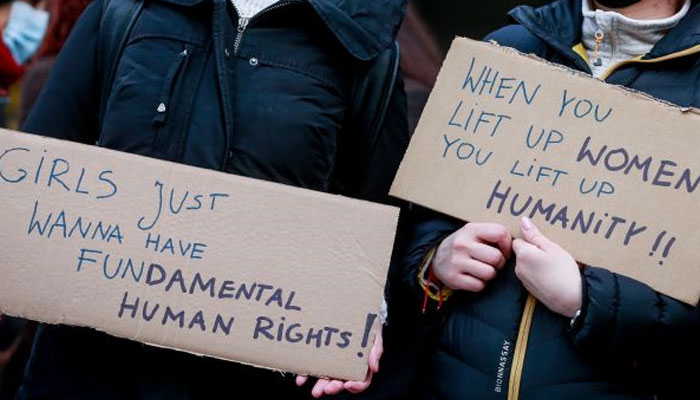 GIRLS JUST
WANNA HAVE
FUNDAMENTAL
HUMAN RIGHTS!
WHEN YOU
LIFT UP WOMEN
YOU LIFT UP
HUMANITY!!
BIONNASSAY